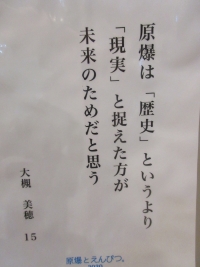 原爆は「歴史」というより
「現実」と捉えた方が
未来のためだと思う
大槻 美穂 15
原爆とえんぴつ。
2020